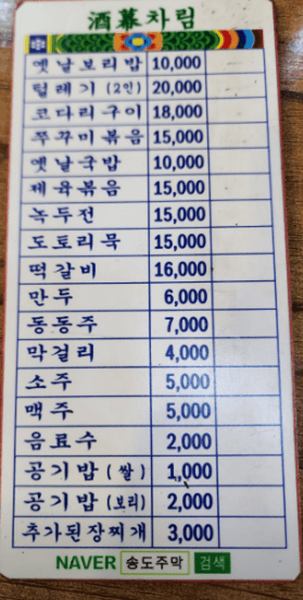 酒幕차림
옛날보리밥 10,000
털레기 (2인) 20,000
코다리구이 18,000
쭈꾸미볶음 15,000
옛날국밥 10,000
제육볶음 15,000
녹두전 15,000
도토리묵 15,000
떡갈비 16,000
만두 6,000
동동주 7,000
막걸리 4,000
소주 5,000
맥주 5,000
음료수 2,000
공기밥 (쌀) 1,000
공기밥 (보리) 2,000
추가된장찌개 3,000
NAVER 송도주막 검색